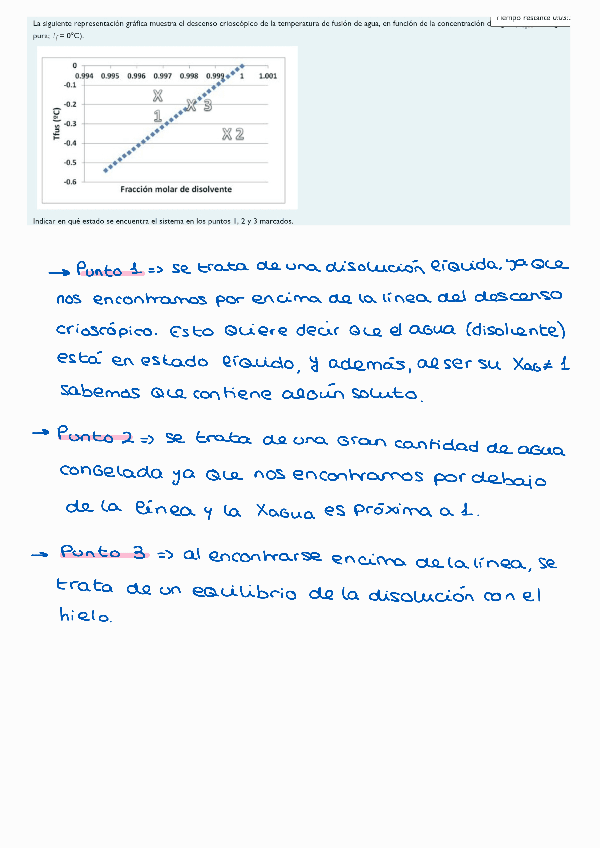 La siguiente representación gráfica muestra el descenso crioscópico de la temperatura de fusión de agua, en función de la concentración
Tiempo restante 0:03:
pura, Tf = 0°C).
0
0.994 0.995 0.996 0.997 0.998 0.999 1 1.001
-0.1
-0.2
-0.3
-0.4
-0.5
-0.6
Tfus (ºC)
X
1
X 3
X 2
Fracción molar de disolvente
Indicar en qué estado se encuentra el sistema en los puntos 1, 2 y 3 marcados.
→ Punto 1 => se trata de una disolución líquida, ya que
nos encontramos por encima de la línea del descenso
crioscópico. Esto quiere decir que el agua (disolvente)
está en estado líquido, y además, al ser su XAG ≠ 1
sabemos que contiene algún soluto.
→ Punto 2 => se trata de una gran cantidad de agua
congelada ya que nos encontramos por debajo
de la línea y la Xagua es próxima a 1.
→ Punto 3 => al encontrarse encima de la línea, se
trata de un equilibrio de la disolución con el
hielo.